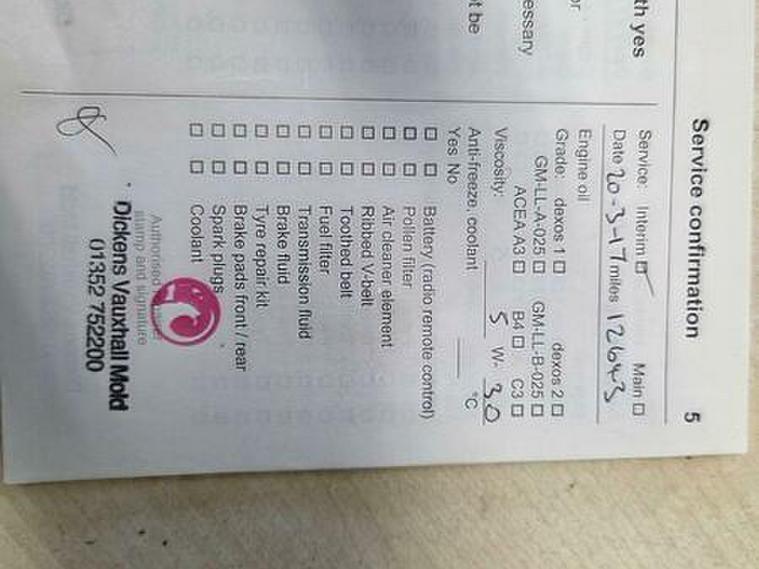 th yes
or
essary
t be
Service confirmation 5
Service: Interim ☑ Main ☐
Date 20-3-17 miles 12643
Engine oil
Grade: dexos 1 ☐ dexos 2 ☐
GM-LL-A-025 ☐ GM-LL-B-025 ☐
ACEA A3 ☐ B4 ☐ C3 ☐
Viscosity: 5 W- 30
Anti-freeze, coolant °C
Yes No
☐ ☐ Battery (radio remote control)
☐ ☐ Pollen filter
☐ ☐ Air cleaner element
☐ ☐ Ribbed V-belt
☐ ☐ Toothed belt
☐ ☐ Fuel filter
☐ ☐ Transmission fluid
☐ ☐ Brake fluid
☐ ☐ Tyre repair kit
☐ ☐ Brake pads front / rear
☐ ☐ Spark plugs
☐ ☐ Coolant
Authorised
stamp and signature
Dickens Vauxhall Mold
01352 752200